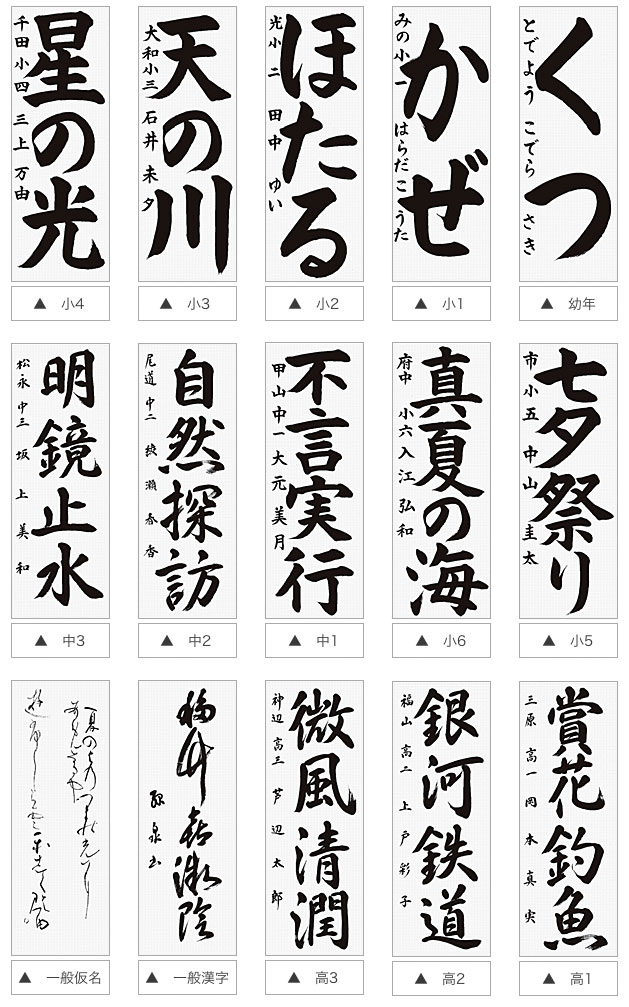 くつ
とでよう こでら さき
▲ 幼年
かぜ
みの小一 はらだ こうた
▲ 小1
ほたる
光小二 田中 ゆい
▲ 小2
天の川
大和小三 石井 未夕
▲ 小3
星の光
千田小四 三上 万由
▲ 小4
七夕祭り
市小五 中山 圭太
▲ 小5
真夏の海
府中 小六 入江 弘和
▲ 小6
不言実行
甲山中一 大元 美月
▲ 中1
自然探訪
尾道 中二 綾瀬 春香
▲ 中2
明鏡止水
松永 中三 坂上 美和
▲ 中3
賞花釣魚
三原 高一 岡本 真実
▲ 高1
銀河鉄道
福山 高二 上戸 彩子
▲ 高2
微風清潤
神辺 高三 芦辺 太郎
▲ 高3
▲ 一般漢字
▲ 一般仮名